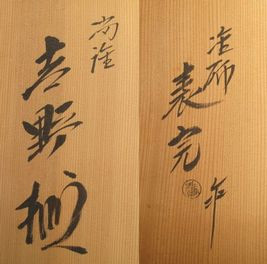 塗
吉野棚
塗師
表完
作